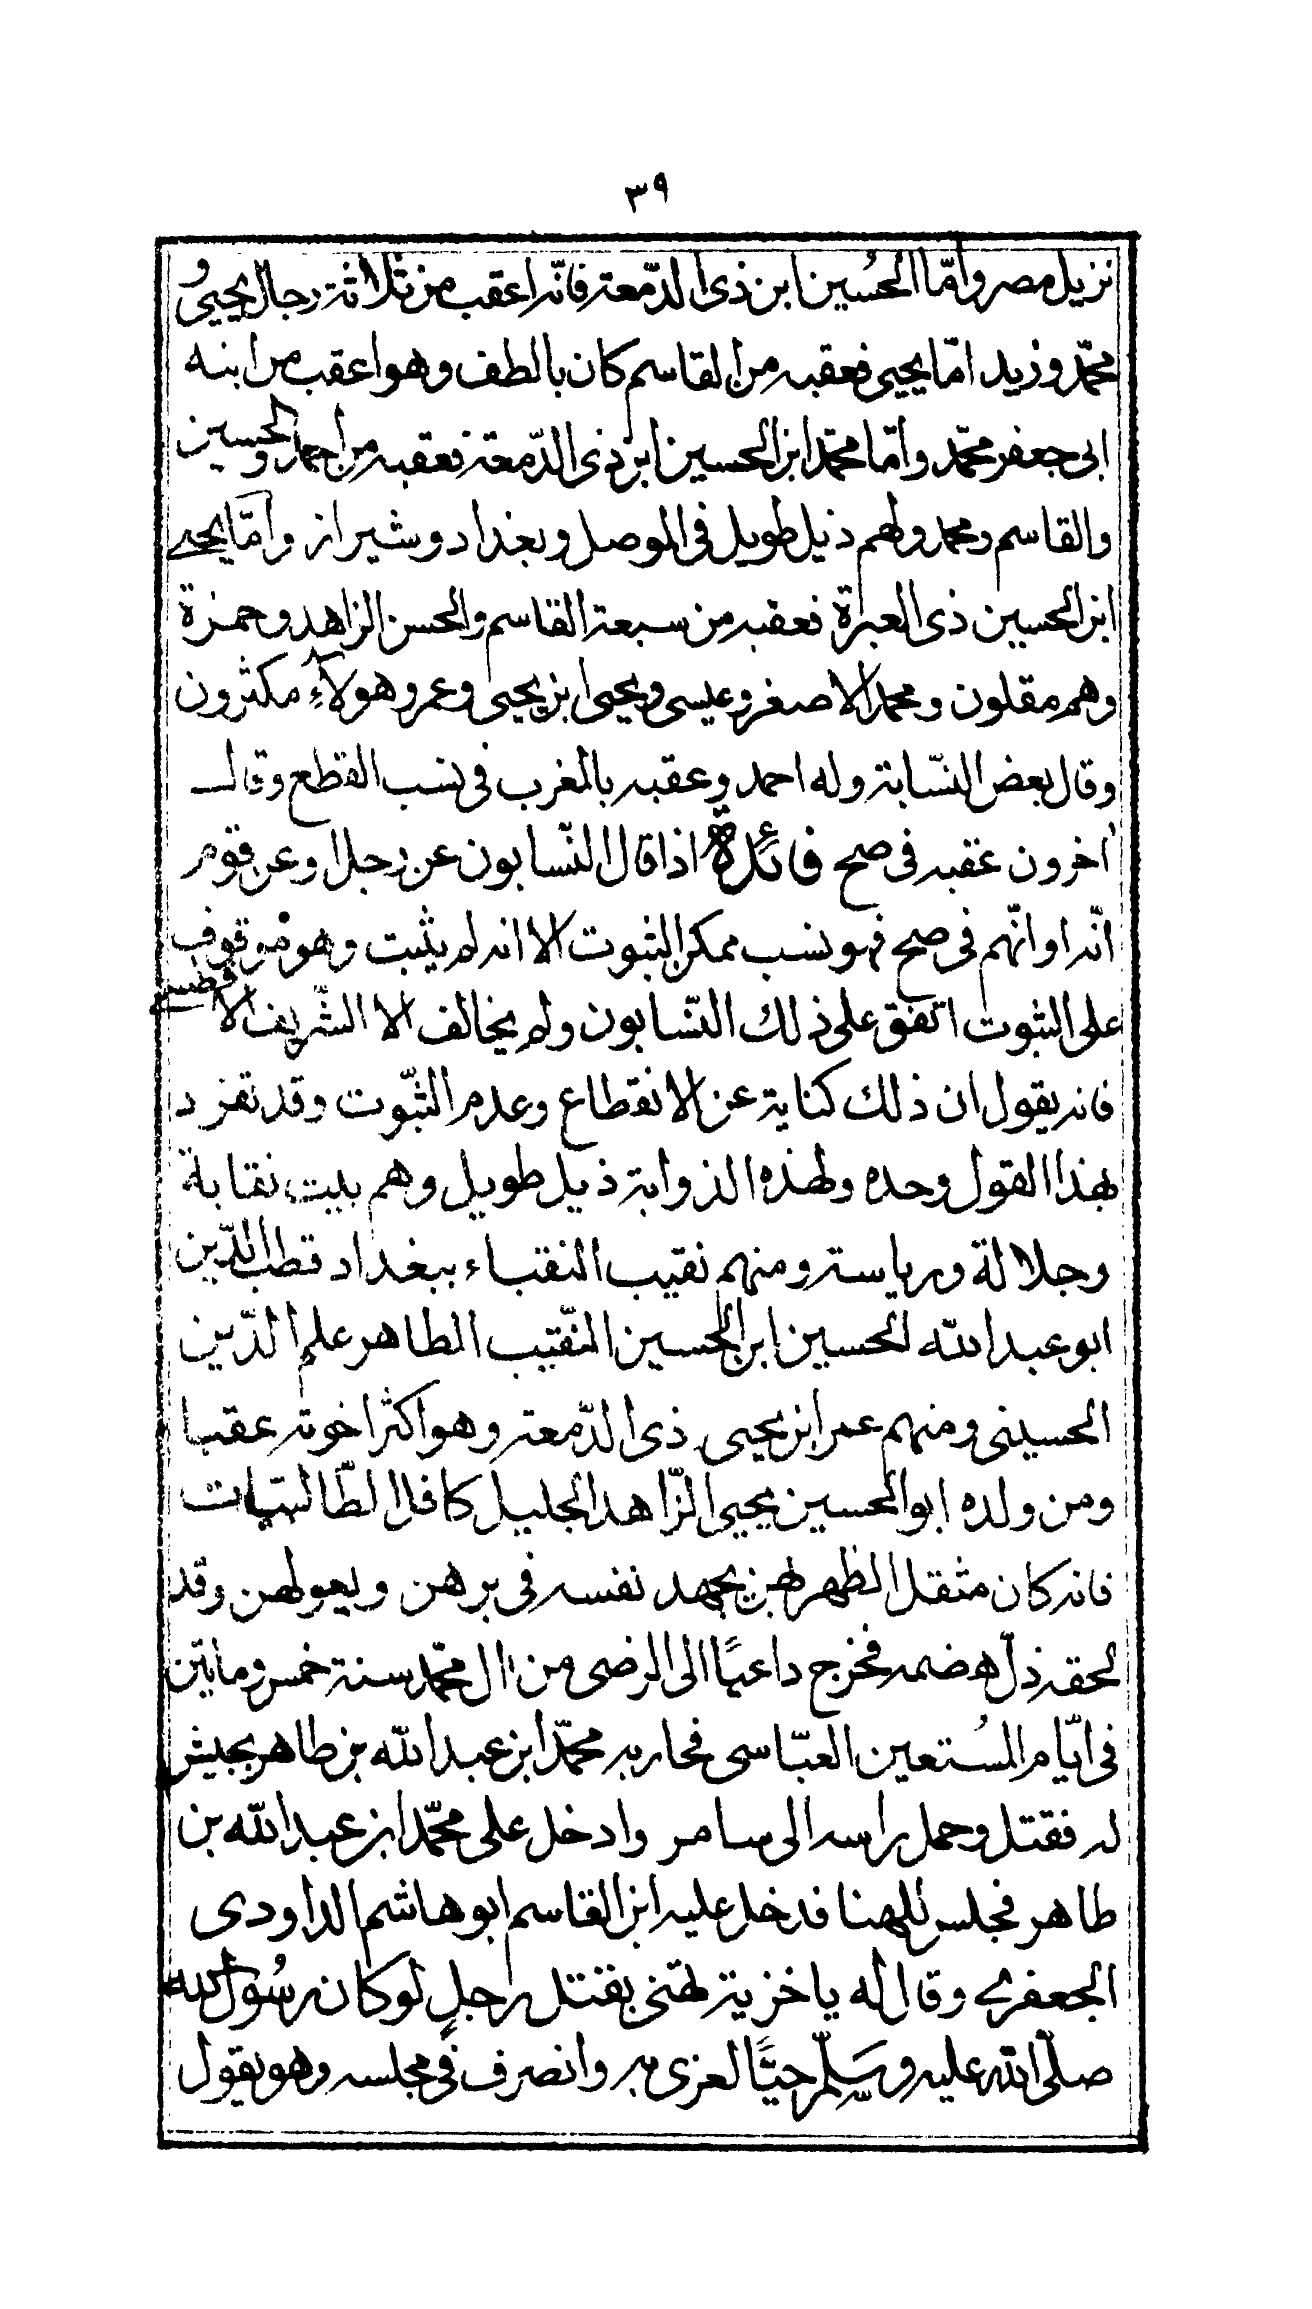 ٣٩
نزيل مصر وامّا الحُسين ابن ذى الدّمعة فانّه اعقب من ثلاثة رجال يحيى و
محمّد وزيد امّا يحيى فعقبه من القاسم كان بالطف وهو اعقب من ابنه
ابى جعفر محمّد وامّا محمّد ابن الحسين ابن ذى الدّمعة فعقبه من احمد والحسين
والقاسم ومحمد ولهم ذيل طويل فى الموصل وبغداد وشيراز وامّا يحيى
ابن الحسين ذى العبرة فعقبه من سبعة القاسم والحسن الزاهد وحمزة
وهم مقلون ومحمد الاصغر وعيسى ويحيى ابن يحيى وعمر وهولآءِ مكثرون
وقال بعض النسّابة وله احمد وعقبه بالمغرب فى نسب القطع وقال
اخرون عقبه فى صح فائدة اذا قال النّسابون عن رجل او عن قوم
انّه او انّهم فى صح فهو نسب ممكن الثبوت الا انه لم يثبت وهو موقوف
على الثبوت اتفق على ذلك النّسابون ولم يخالف الا الشّريف الافطسى
فانه يقول ان ذلك كناية عن الانقطاع وعدم الثّبوت وقد تفرد
بهذا القول وحده ولهذه الذوابة ذيل طويل وهم بيت نقابة
وجلالة ورياسة ومنهم نقيب النقباء ببغداد قطب الدّين
ابو عبد الله الحسين ابن الحسين النّقيب الطاهر علم الدّين
الحسينى ومنهم عمر ابن يحيى ذى الدّمعة وهو اكثر اخوته عقبا
ومن ولده ابو الحسين يحيى الزّاهد الجليل كافل الطّالبيّات
فانه كان مثقل الظهر لهن يجهد نفسه فى برهن ويعولهن وقد
لحقه ذل هضمه فخرج داعيًا الى الرضى من ال محمّد سنة خمس ومايتين
فى ايّام المُستعين العبّاسى فحاربه محمّد ابن عبد الله بن طاهر بجيش
له فقتل وحمل راسه الى سامر وادخل على محمّد ابن عبد الله بن
طاهر فجلس للهنا فدخل عليه ابن القاسم ابو هاشم الداودى
الجعفرى وقال له يا خزية لهنى بقتل رجلٍ لو كان رسُول الله
صلّى الله عليه وسَلّم حيًّا لعزى به وانصرف فى مجلسه وهو يقول